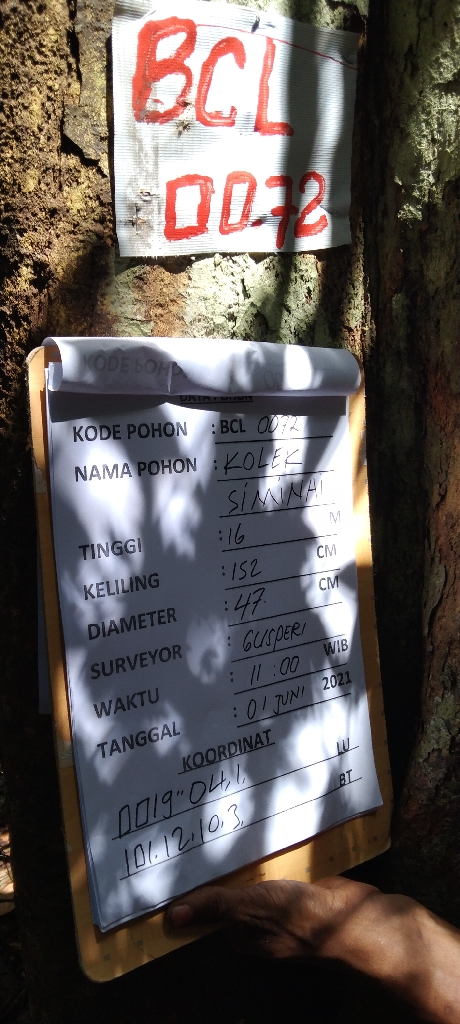 BCL
0072
KODE POHON
DATA POHON
KODE POHON : BCL 0072
NAMA POHON : KOLEK
SIMINAI
TINGGI : 16 M
KELILING : 152 CM
DIAMETER : 47. CM
SURVEYOR : GUSPERI
WAKTU : 11:00 WIB
TANGGAL : 01 JUNI 2021
KOORDINAT
0019" 04,1, LU
101.12.10.3, BT